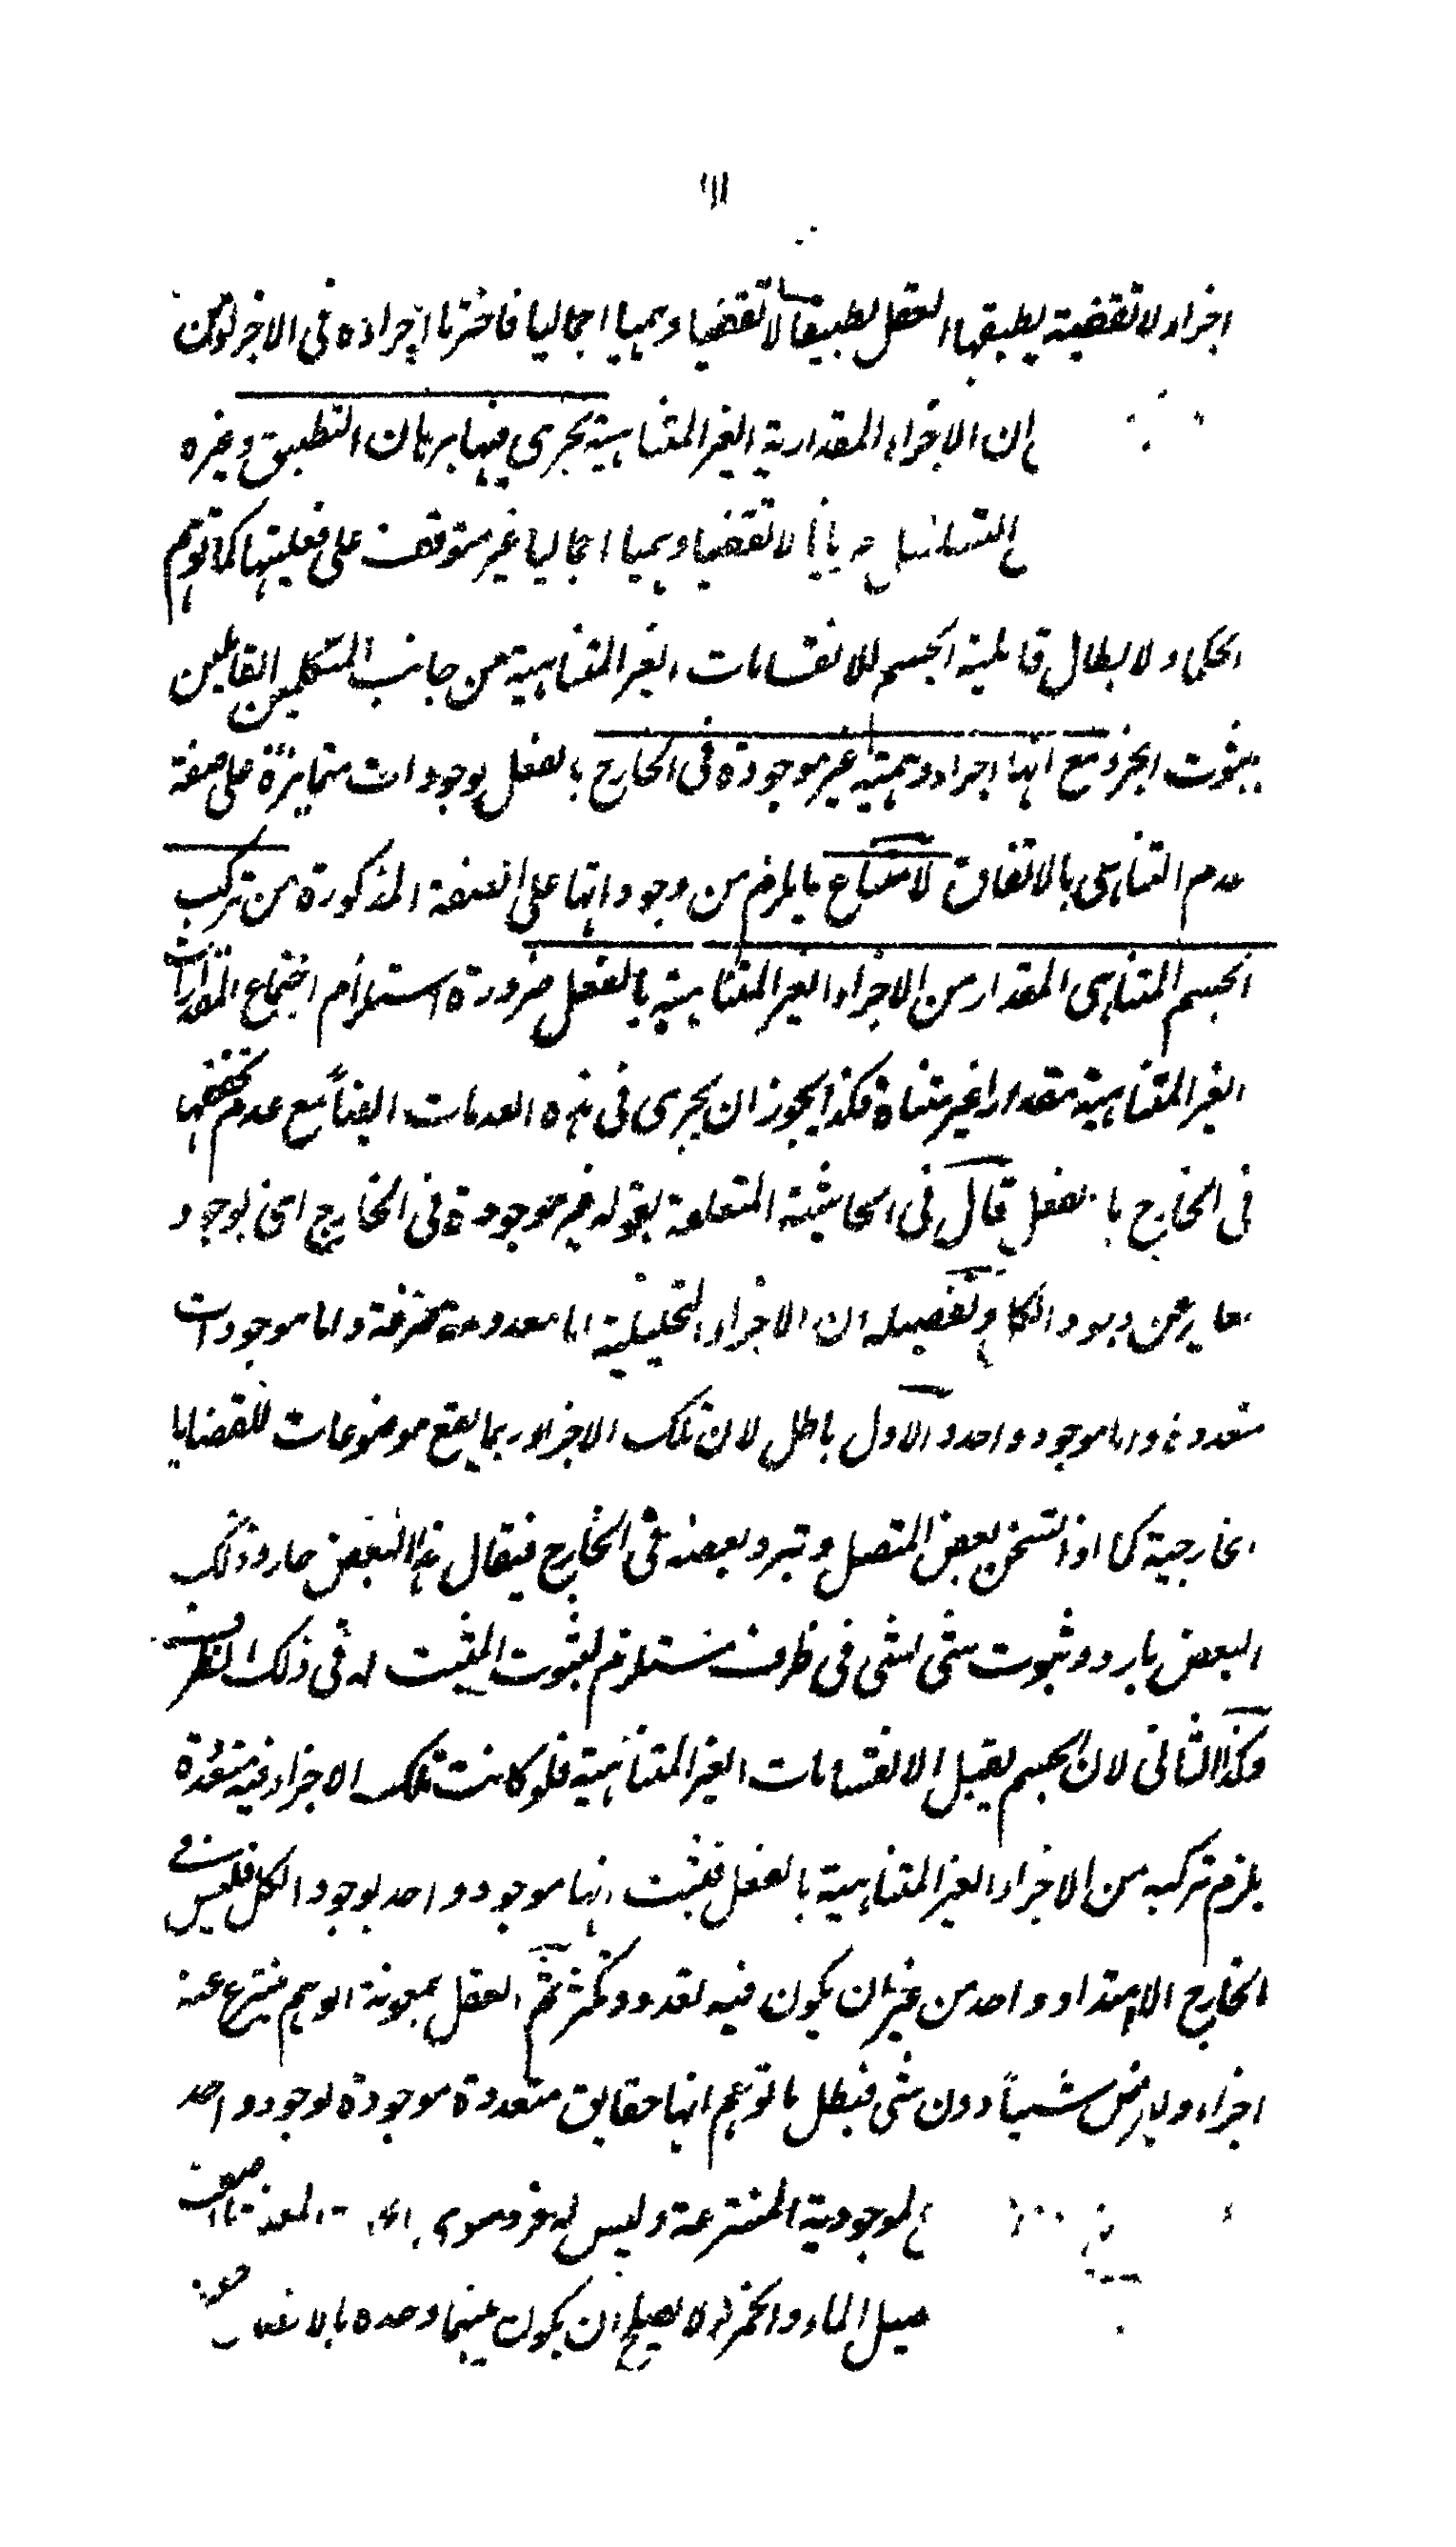 ١١١
اجزاء لا تقضية يطبقها العقل تطبيقا لا تقضيا وهميا اجماليا فاخترنا اجراءه فى الاجزاء لكن
ان الاجزاء المقدارية الغير المتناهية يجرى فيها برهان التطبيق وغيره
التسلسل لا تقضيا وهميا اجماليا غير متوقف على فعليتها كما توهم
الحكماء ولا بطال قابلية الجسم للانقسامات الغير المتناهية من جانب المتكلمين القايلين
بثبوت الجزء مع انها اجزاء وهمية غير موجودة فى الخارج بالفعل بوجودات متمايزة على صفة
عدم التناهى بالاتفاق لامتناع ما يلزم من وجوداتها على الصفة المذكورة من تركب
الجسم المتناهى المقدار من الاجزاء الغير المتناهية بالفعل ضرورة استلزام اجتماع المقدارات
الغير المتناهية مقدارا غير متناه فكذا يجوز ان يجرى فى هذه العدمات ايضاً مع عدم تحققها
فى الخارج بالفعل قال فى الحاشية المتعلقة بقوله غير موجودة فى الخارج اى بوجود
مغاير عن وجود الكل وتفصيله ان الاجزاء التحليلية اما معدومة صرفة واما موجودات
متعددة واما موجود واحد والاول باطل لان تلك الاجزاء ربما يقع موضوعات للقضايا
الخارجية كما اذا تسخن بعض المتصل وتبرد بعضه فى الخارج فيقال هذا البعض حار وذلك
البعض بارد وثبوت شئ لشئ فى ظرف مستلزم لثبوت المثبت له فى ذلك الظرف
وكذا الثانى لان الجسم يقبل الانقسامات الغير المتناهية فلو كانت تلك الاجزاء فيه متعددة
يلزم تركبه من الاجزاء الغير المتناهية بالفعل فثبت انها موجود واحد بوجود الكل فليس فى
الخارج الا امتداد واحد من غير ان يكون فيه تعدد وتكثر ثم العقل بمعونة الوهم ينتزع عنه
اجزاء ويفرض شيئاً دون شئ فبطل ما توهم انها حقايق متعددة موجودة بوجود واحد
الموجودية المنتزعة وليس له فرد سوى
الماء والخمر لا يصلح ان يكون عينها وحده